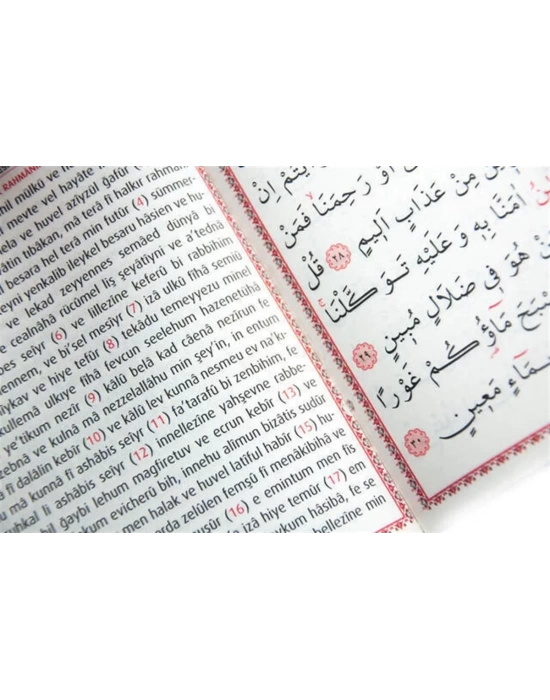 RAHMAN
mil mülkü ve
meyte vel hayâte
ela ve huvel azîyzül gafûr
vâtin tıbâkan, mâ terâ fî halkır rahmâni
besara hel terâ min futûr (4) sümmer-
eyni yenkalib ileykel besaru hâsien ve hu-
ve lekad zeyyennes semâed dünyâ bi
ve cealnâhâ rücûmel liş şeyâtîyni ve a'tednâ
bes seîyr (6) ve lillezîne keferû bi rabbihim
ennem, ve bi'sel mesîyr (7) izâ ulkû fîhâ semiû
îykav ve hiye tefûr (8) tekâdu temeyyezu minel
kullemâ ulkıye fîhâ fevcun seelehum hazenetühâ
e'tikum nezîr (9) kâlû belâ kad câenâ nezîrun fe
zebnâ ve kulnâ mâ nezzelallâhu min şey'in, in entum
fî dalâlin kebîr (10) ve kâlû lev kunnâ nesmeu ev na'k-
mâ kunnâ fî ashâbis seîyr (11) fa'terafû bi zenbihim, fe
uhkal li ashâbis seîyr (12) innellezîne yahşevne rabbe-
bil ğaybi lehum mağfiretuv ve ecrun kebîr (13) ve
kum evicherû bih, innehu alîmun bizâtis sudûr
men halak ve huvel latîful habîr (15) hu-
arda zelûlen femşû fî menâkibihâ ve
nuşûr (16) e emintum men fis
izâ hiye temûr (17) em
aykum hâsibâ, fe se
bellezîne min
اَوْ رَحِمَنَا فَمَنْ
مِنْ عَذَابٍ اَلِيمٍ ٢٨ قُلْ
اٰمَنَّا بِهٖ وَعَلَيْهِ تَوَكَّلْنَا
هُوَ فِي ضَلَالٍ مُبِينٍ ٢٩
مَاؤُكُمْ غَوْرًا
مَعِينٍ ٣٠